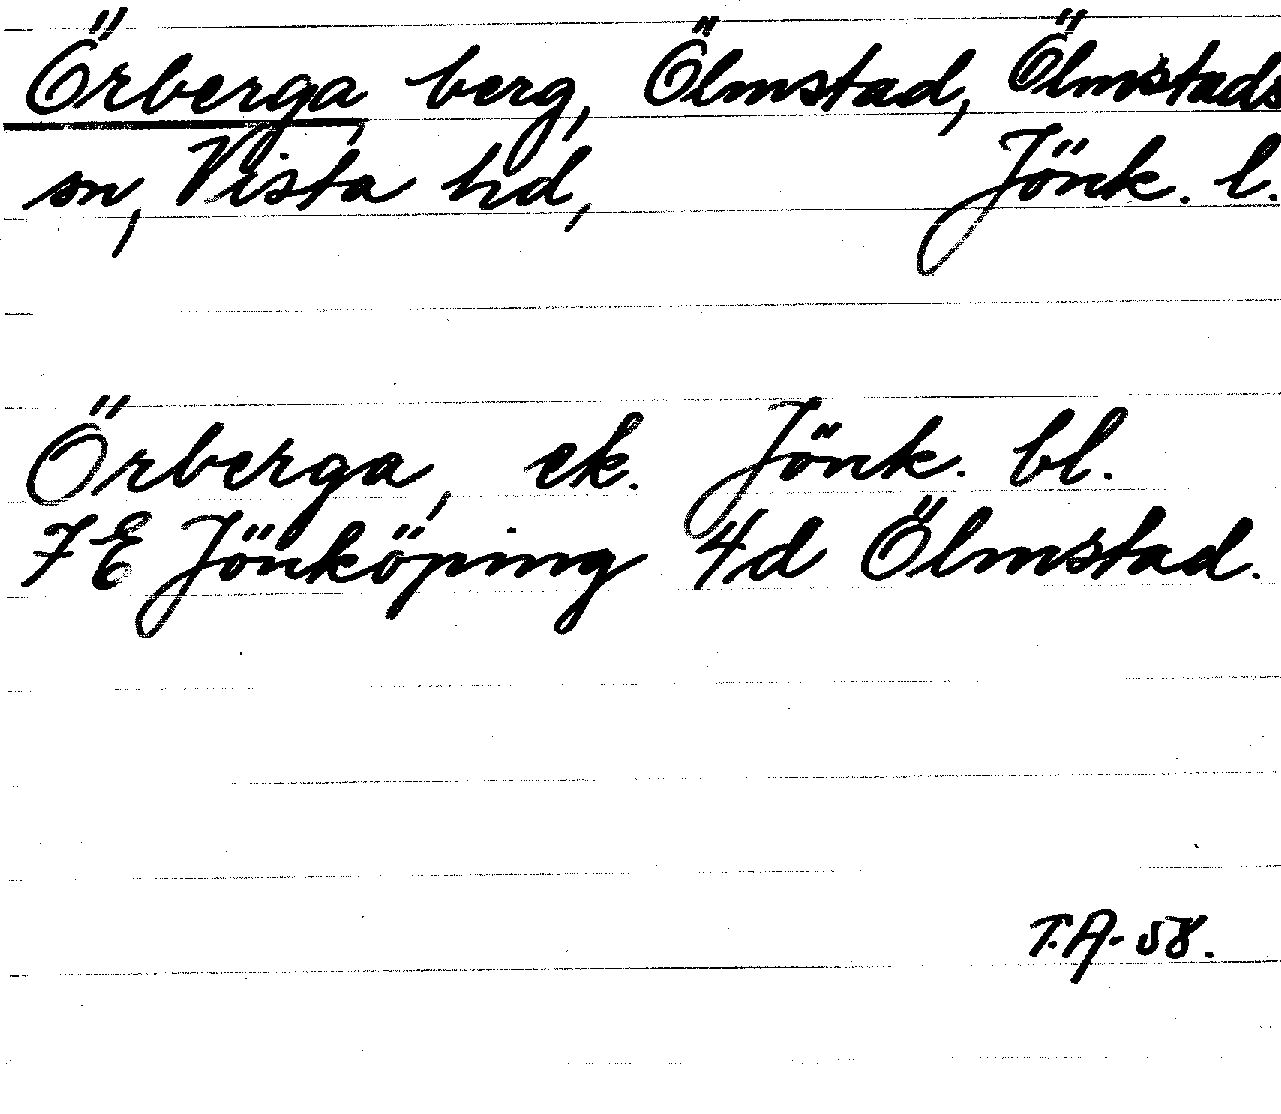 Örberga berg, Ölmstad, Ölmstads
sn, Vista hd, Jönk. l.
Örberga, ek. Jönk. bl.
7E Jönköping 4d Ölmstad.
T.A-58.